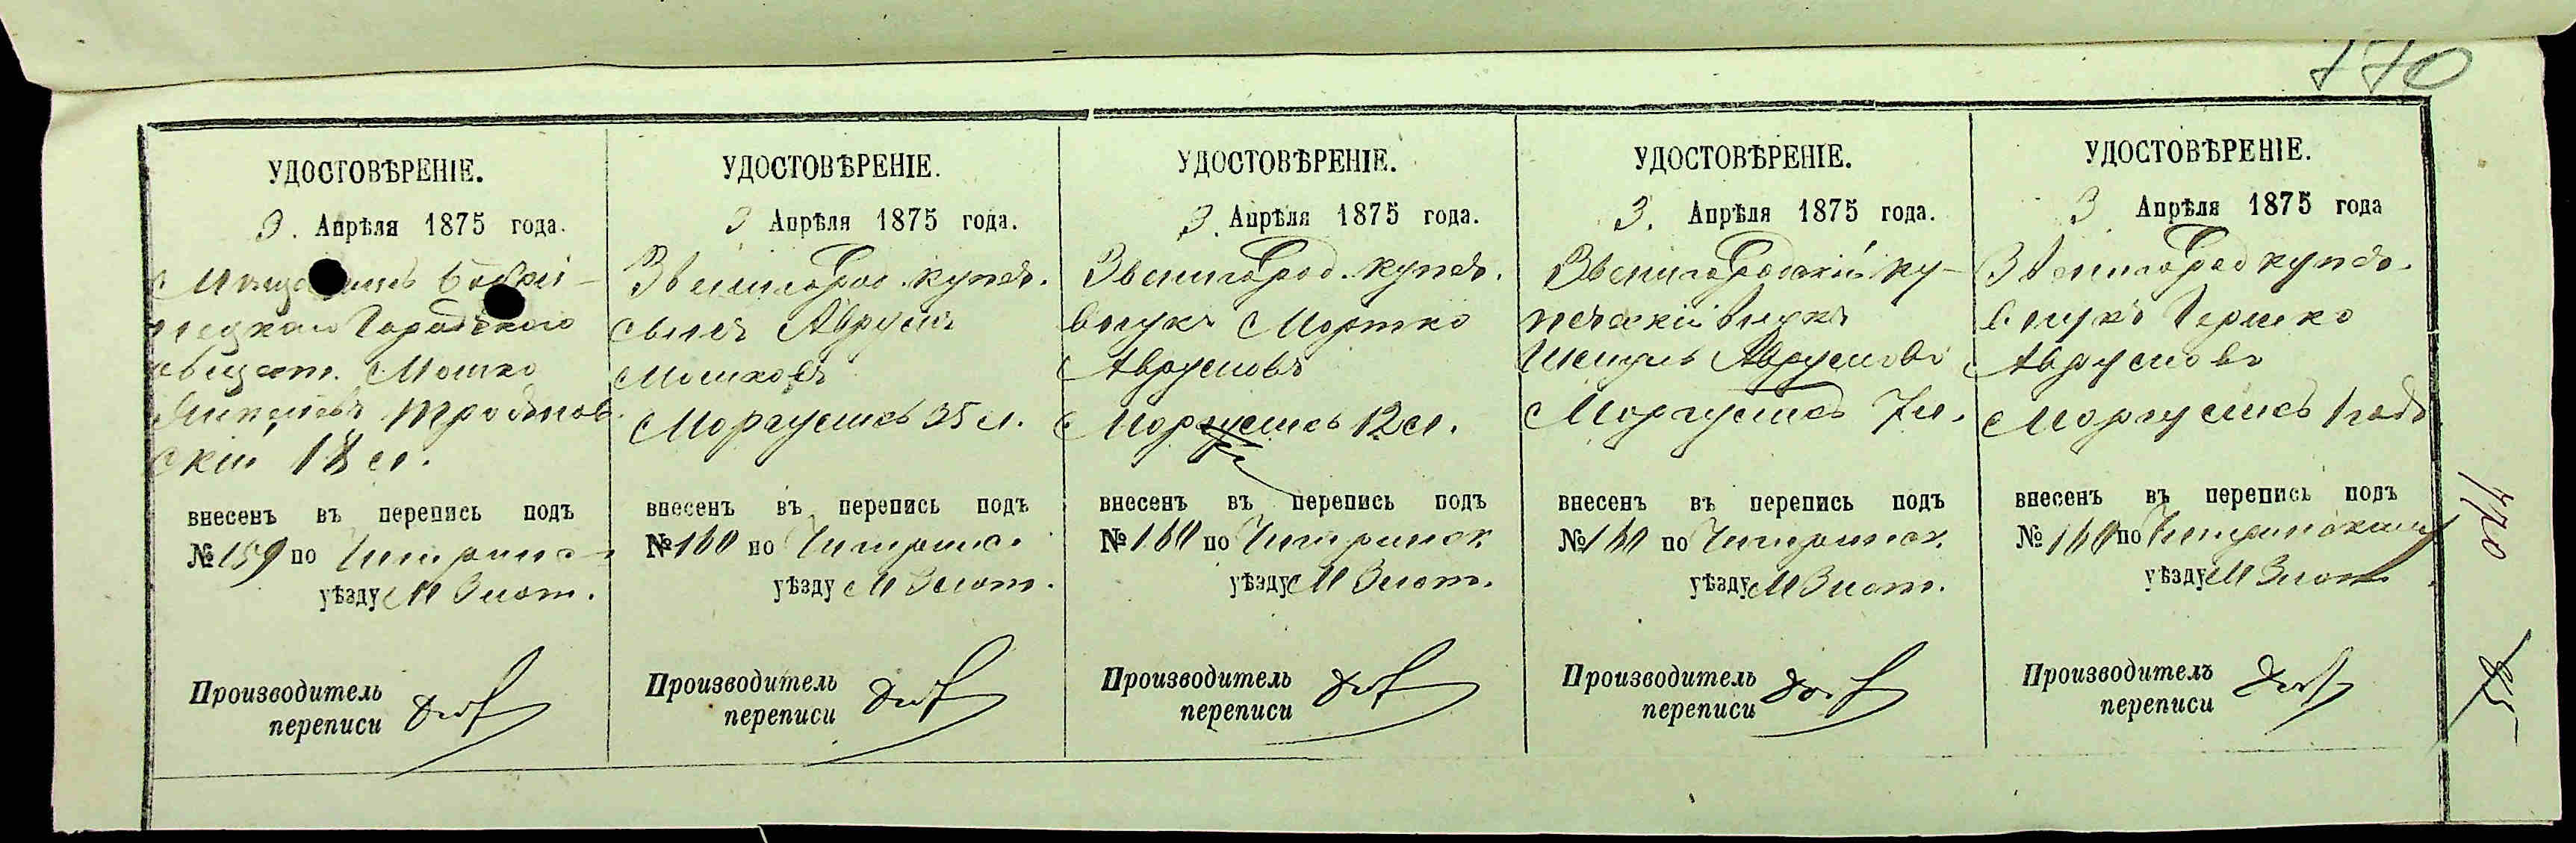 770
УДОСТОВѢРЕНІЕ.
3. Апрѣля 1875 года.
Городского
Мошко
скій 18 л.
внесенъ въ перепись подъ
№ 159 по Чигринс
уѣзду М Злот.
Производитель
переписи
УДОСТОВѢРЕНІЕ.
3 Апрѣля 1875 года.
Звенигород. купеч.
сынъ Аврумъ
Мошковъ
Моргулисъ 35 л.
внесенъ въ перепись подъ
№ 160 по Чигринс.
уѣзду М Злот.
Производитель
переписи
УДОСТОВѢРЕНІЕ.
3. Апрѣля 1875 года.
Звенигород. купеч.
внукъ Мортко
Аврумовъ
Моргулисъ 12 л.
внесенъ въ перепись подъ
№ 160 по Чигринск
уѣзду М Злот.
Производитель
переписи
УДОСТОВѢРЕНІЕ.
3. Апрѣля 1875 года.
Звенигородскій ку-
печескій внукъ
Шмуль Аврумовъ
Моргулисъ 7 л.
внесенъ въ перепись подъ
№ 160 по Чигринск.
уѣзду М Злот.
Производитель
переписи
УДОСТОВѢРЕНІЕ.
3 Апрѣля 1875 года
Звенигород купеч.
внукъ Гершко
Аврумовъ
Моргулисъ 1 годъ
внесенъ въ перепись подъ
№ 160 по Чигринскому
уѣзду М Злот.
Производитель
переписи
470